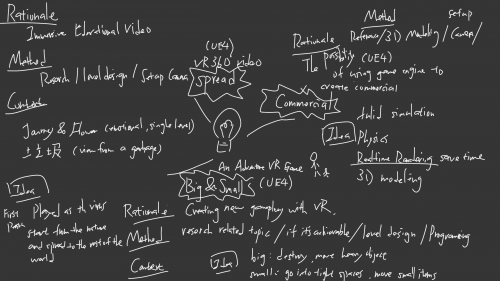 Rationale
Immersive Educational Video
Method
Research / level design / Setup Camera
Context
Journey & Flower (emotional, single level)
(view from a garbage)
Idea
First Person
Played as th virus
start from the nature
and spread to the rest of the
world
(UE4)
VR 360 video
Spread
Commercial
An Adventure VR Game
Big & Small
(UE4)
Rationale
Creating new gameplay with VR.
Method
research related topic / if its achievable / level design / Programming
Context
Idea
big: destroy, move heavy object
small: go into tight spaces, move small items
Method
setup
Reference / 3D Modeling / Camera /
Rationale
The possibility (UE4)
of using game engine to
create commercial
fluid simulation
Idea
Physics
Realtime Rendering save time
3D modeling